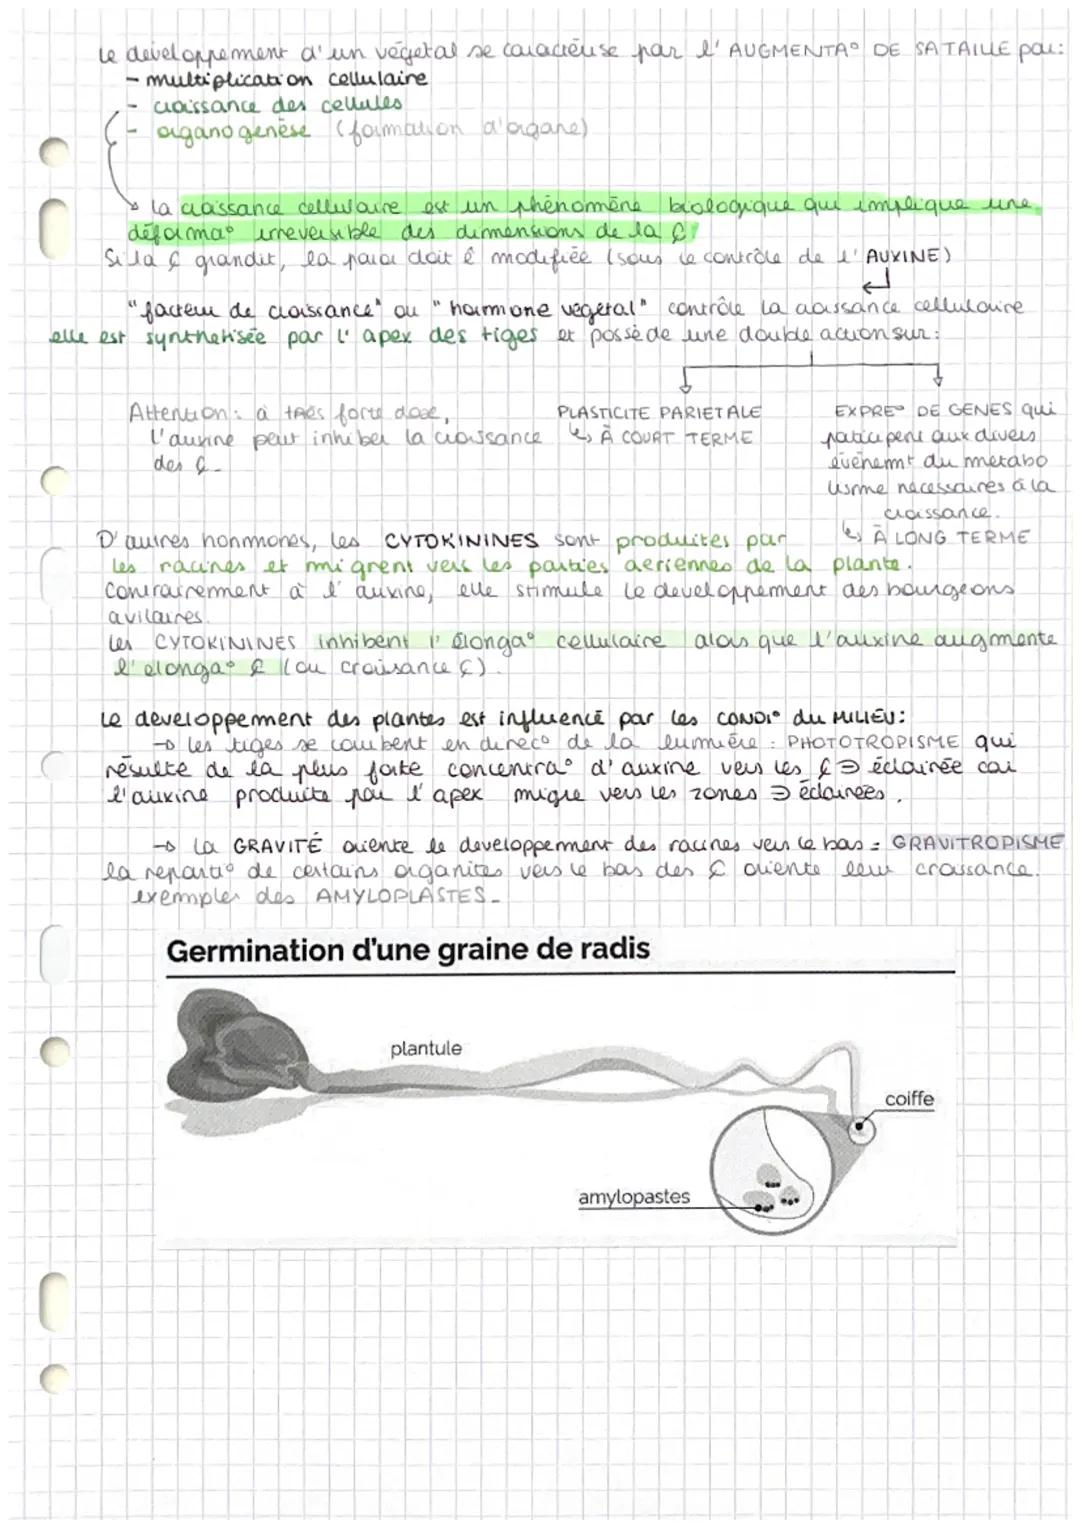 Le développement d'un végétal se caractérise par l'AUGMENTA° DE SA TAILLE par:
- multiplication cellulaire
- croissance des cellules
- organogenèse (formation d'organe)
La croissance cellulaire est un phénomène biologique qui implique une
déforma° irreversible des dimensions de la ₵
Si la ₵ grandit, la paroi doit ê modifiée (sous le contrôle de l'AUXINE)
"facteur de croissance" ou "hormone végétal" contrôle la croissance cellulaire
elle est synthétisée par l'apex des tiges et possède une double action sur:
Attention: à très forte dose,
l'auxine peut inhiber la croissance
des ₵.
PLASTICITE PARIETALE
↳ À COURT TERME
EXPRE° DE GENES qui
participent aux divers
évenemt du metabo
lisme nécessaires à la
croissance.
↳ À LONG TERME
D'autres honmones, les CYTOKININES sont produites par
les racines et migrent vers les parties aeriennes de la plante.
Contrairement à l'auxine, elle stimule le developpement des bourgeons
axilaires.
Les CYTOKININES inhibent l'élonga° cellulaire alors que l'auxine augmente
l'elonga° ₵ (ou croissance ₵).
Le developpement des plantes est influencé par les CONDI° du MILIEU:
→ Les tiges se courbent en direc° de la lumière : PHOTOTROPISME qui
résulte de la plus forte concentra° d'auxine vers les ₵ ∋ éclairée car
l'auxine produite par l'apex migre vers les zones ∋ éclairées.
→ La GRAVITÉ oriente le developpement des racines vers le bas = GRAVITROPISME
la réparti° de certains organites vers le bas des ₵ oriente leur croissance.
exemples des AMYLOPLASTES.
Germination d'une graine de radis
plantule
coiffe
amylopastes